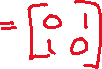 = [0 1
1 0]